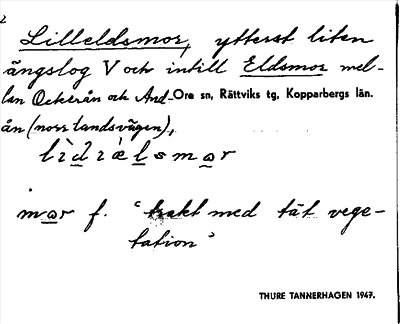 Lilleldsmor, ytterst liten
ängslog V och intill Eldsmor mel-
lan Ockerån och And- Ore sn, Rättviks tg, Kopparbergs län.
ån (norr landsvägen),
mor f. "trakt med tät vege-
tation"
THURE TANNERHAGEN 1947.